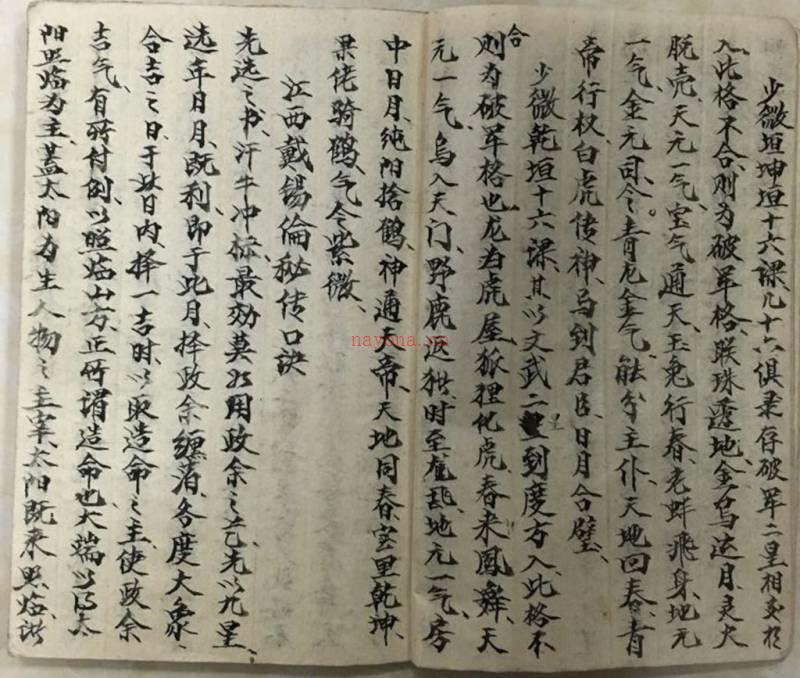 少微垣坤垣十六课、凡十六俱录存破军二星相交於
入此格不合、则为破军格、联珠透地、金乌达月、灵犬
脱壳、天元一气、宝气通天、玉兔行春、老蚌飛身、地元
一气、金元司令。青龙金气、能分主仆、天地回春、青
帝行权、白虎传神、马到君臣、日月合璧、
少微乾垣十六课、其以文武二星到度方入此格不
合
则为破军格也、龙为虎屋、狐狸化虎、春来凤舞、天
元一气、乌入天门、野鹿返林、时至、地元一气、房
中日月、纯阳捨鹤、神通天帝、天地同春、室里乾坤、
果佬骑鹤、气令紫微、
江西戴锡倫秘传口訣
先选之书、汗牛冲栋、最効莫如用政余之艺、先以九星、
选年日月、既利、即于此月、择政余缠著、各度大象、
合吉之日、于此日内、择一吉时、以取造命之主、使政余
吉气、有所付倒、以照临山方、正所谓造命也、大端以得太
阳照临为主、蓋太阳为生人物之主宰、太阳既来照临、諸
nayona.cn